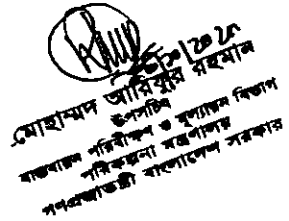 মোহাম্মদ আরিফুর রহমান
উপসচিব
বাস্তবায়ন পরিবীক্ষণ ও মূল্যায়ন বিভাগ
পরিকল্পনা মন্ত্রণালয়
গণপ্রজাতন্ত্রী বাংলাদেশ সরকার